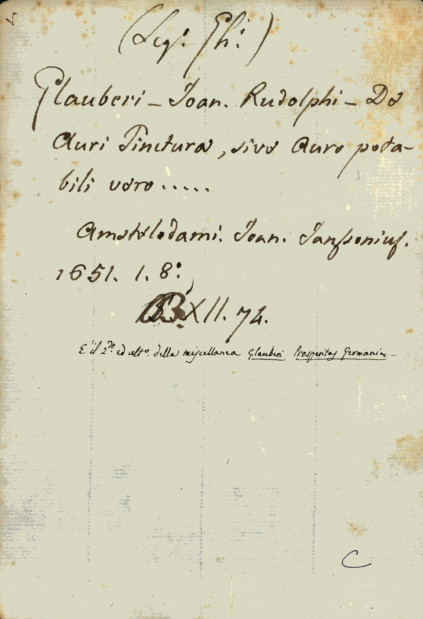 (Leg: Gh:)
Glauberi - Ioan. Rudolphi - De
Auri Tinctura, sive Auro pota-
bili vero.....
Amstelodami. Ioan. Janssonius.
1651. 1. 8°.
BB. XII. 74.
E' il 2.° ed ult°. della miscellanea Glauberi Prosperitas Germaniae -
C